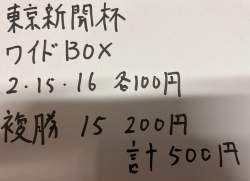 東京新聞杯
ワイドBOX
2・15・16 各100円
複勝 15 200円
計 500円